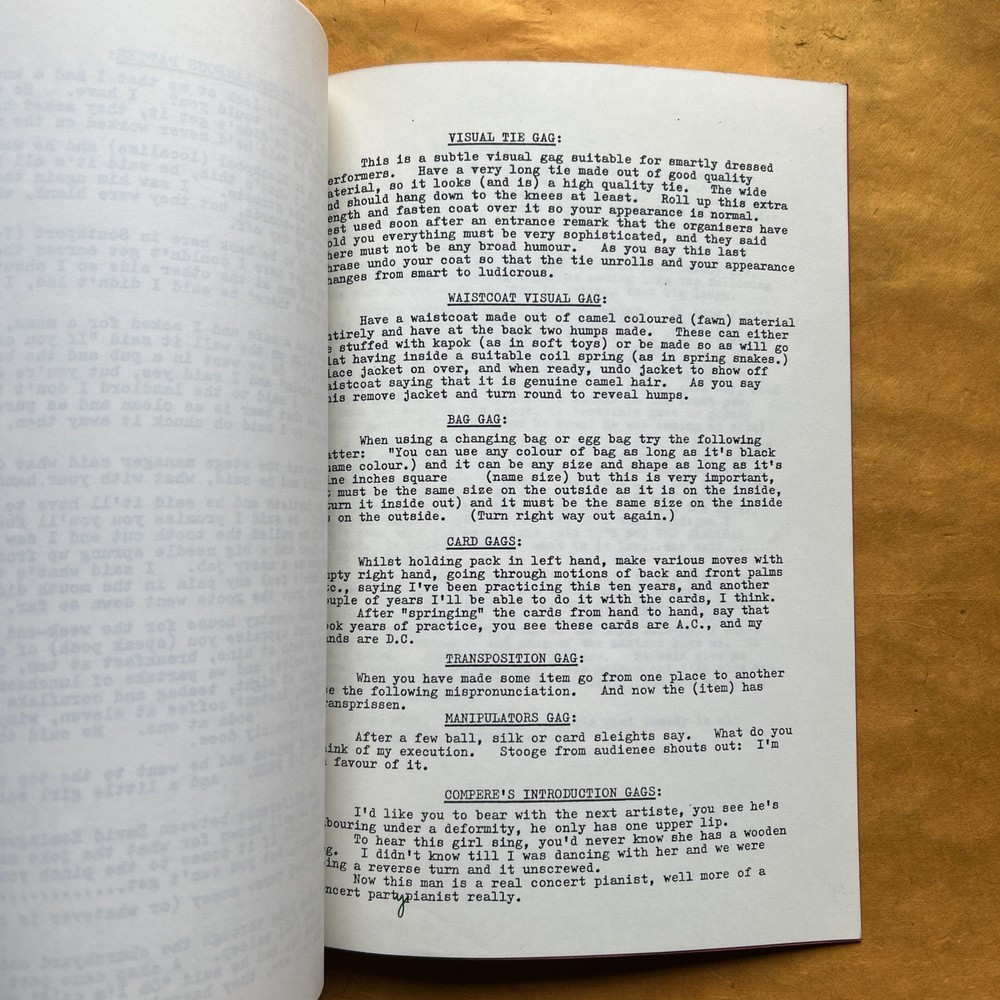 VISUAL TIE GAG:
This is a subtle visual gag suitable for smartly dressed
erformers. Have a very long tie made out of good quality
aterial, so it looks (and is) a high quality tie. The wide
nd should hang down to the knees at least. Roll up this extra
ength and fasten coat over it so your appearance is normal.
est used soon after an entrance remark that the organisers have
old you everything must be very sophisticated, and they said
here must not be any broad humour. As you say this last
hrase undo your coat so that the tie unrolls and your appearance
hanges from smart to ludicrous.
WAISTCOAT VISUAL GAG:
Have a waistcoat made out of camel coloured (fawn) material
ntirely and have at the back two humps made. These can either
e stuffed with kapok (as in soft toys) or be made so as will go
lat having inside a suitable coil spring (as in spring snakes.)
lace jacket on over, and when ready, undo jacket to show off
aistcoat saying that it is genuine camel hair. As you say
his remove jacket and turn round to reveal humps.
BAG GAG:
When using a changing bag or egg bag try the following
atter: "You can use any colour of bag as long as it's black
name colour.) and it can be any size and shape as long as it's
ine inches square (name size) but this is very important,
t must be the same size on the outside as it is on the inside,
turn it inside out) and it must be the same size on the inside
s on the outside. (Turn right way out again.)
CARD GAGS:
Whilst holding pack in left hand, make various moves with
mpty right hand, going through motions of back and front palms
tc., saying I've been practicing this ten years, and another
ouple of years I'll be able to do it with the cards, I think.
After "springing" the cards from hand to hand, say that
ook years of practice, you see these cards are A.C., and my
ands are D.C.
TRANSPOSITION GAG:
When you have made some item go from one place to another
se the following mispronunciation. And now the (item) has
ransprissen.
MANIPULATORS GAG:
After a few ball, silk or card sleights say. What do you
hink of my execution. Stooge from audienee shouts out: I'm
n favour of it.
COMPERE'S INTRODUCTION GAGS:
I'd like you to bear with the next artiste, you see he's
abouring under a deformity, he only has one upper lip.
To hear this girl sing, you'd never know she has a wooden
eg. I didn't know till I was dancing with her and we were
oing a reverse turn and it unscrewed.
Now this man is a real concert pianist, well more of a
oncert party pianist really.